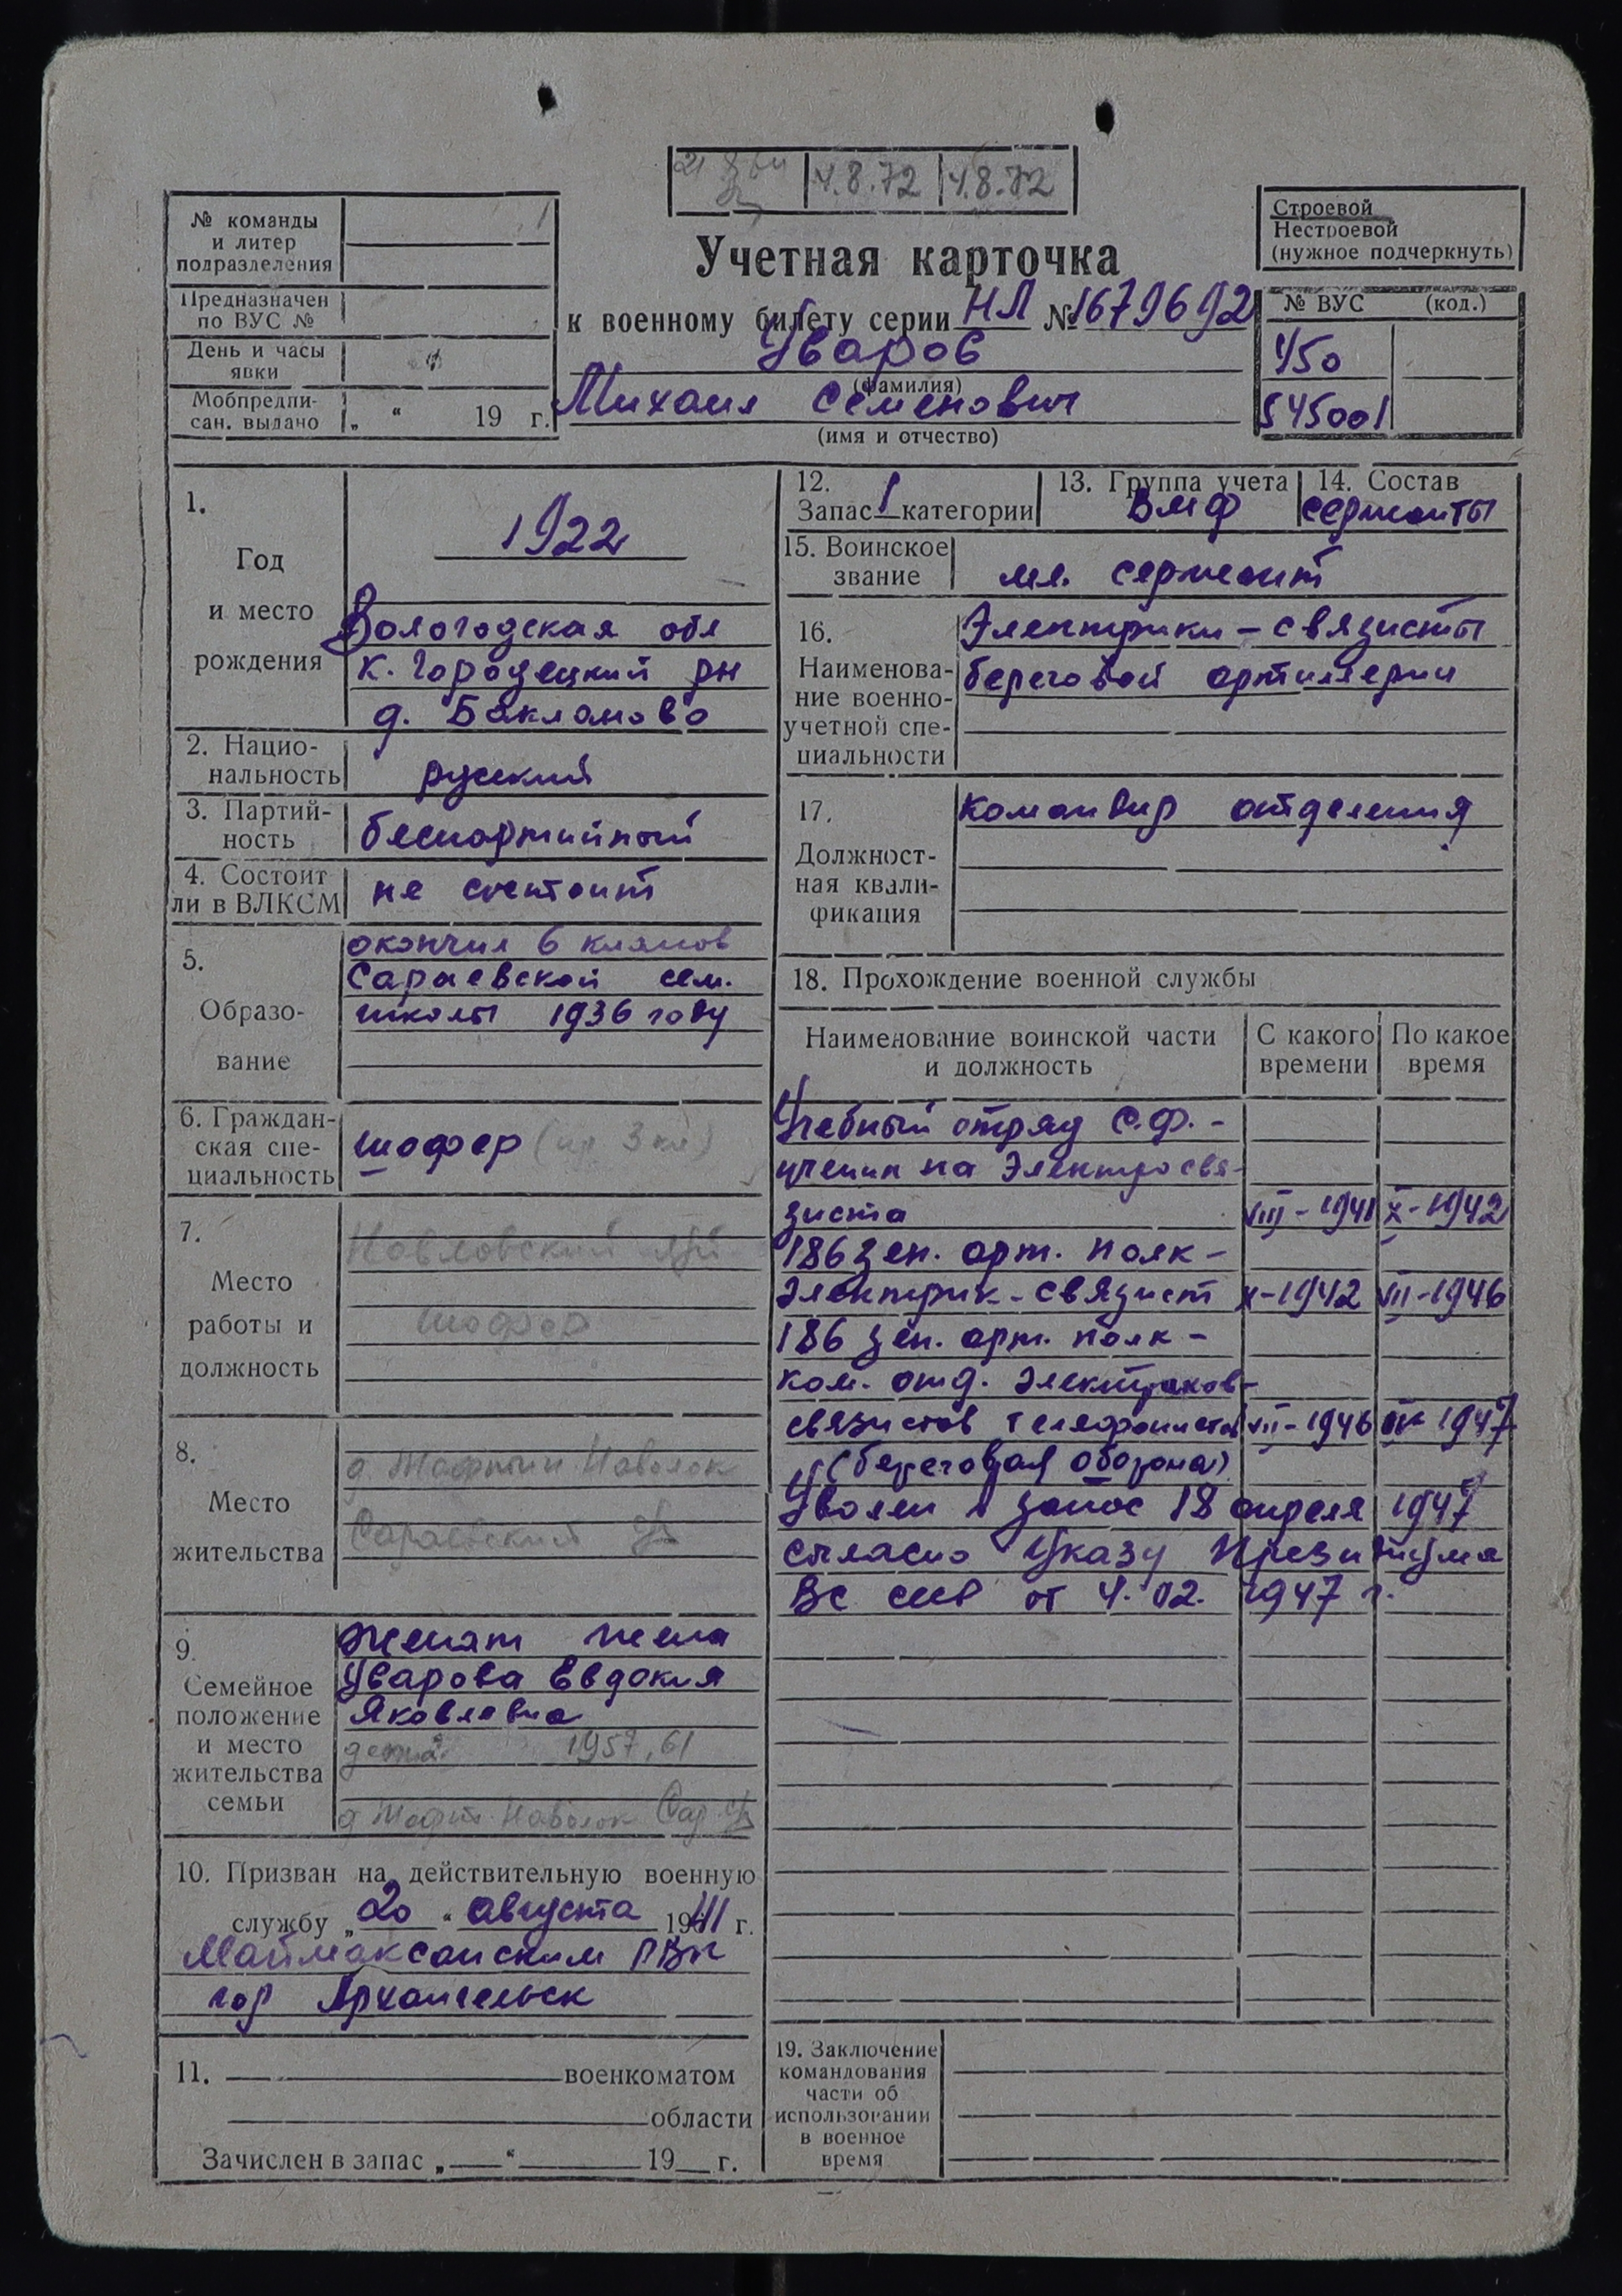 4.8.72 4.8.72
№ команды
и литер
подразделения
Предназначен
по ВУС №
День и часы
явки
Мобпредпи-
сан. выдано „ “ 19 г.
Учетная карточка
к военному билету серии НЛ № 1679692
Уваров
(фамилия)
Михаил Семенович
(имя и отчество)
Строевой
Нестроевой
(нужное подчеркнуть)
№ ВУС (код.)
450
545001
1.
Год
и место
рождения
1922
Вологодская обл
К. Городецкий рн
д. Бакланово
2. Нацио-
нальность
русский
3. Партий-
ность
беспартийный
4. Состоит
ли в ВЛКСМ
не состоит
5.
Образо-
вание
окончил 6 классов
Сараевской сем.
школы 1936 году
6. Граждан-
ская спе-
циальность
шофер
7.
Место
работы и
должность
шофер
8.
Место
жительства
Наволок
Сараевский
9.
Семейное
положение
и место
жительства
семьи
Женат жена
Уварова Евдокия
Яковлевна
дети 1957, 61
Наволок Сар.
10. Призван на действительную военную
службу „20“ августа 1941 г.
Маймаксанским РВК
гор Архангельск
11. военкоматом
области
Зачислен в запас „ “ 19 г.
12.
Запас 1 категории
13. Группа учета
ВМФ
14. Состав
сержанты
15. Воинское
звание
мл. сержант
16.
Наименова-
ние военно-
учетной спе-
циальности
Электрики-связисты
береговой артиллерии
17.
Должност-
ная квали-
фикация
командир отделения
18. Прохождение военной службы
Наименование воинской части
и должность
С какого
времени
По какое
время
Учебный отряд С.Ф. -
ученик на Электросвя-
зиста VIII-1941 X-1942
186 зен. арт. полк -
Электрик-связист X-1942 VII-1946
186 зен. арт. полк -
ком. отд. Электриков-
связистов телефонистов VII-1946 IV 1947
(береговая оборона)
Уволен в запас 18 апреля 1947
согласно Указу Президиума
ВС СССР от 4.02. 1947 г.
19. Заключение
командования
части об
использовании
в военное
время